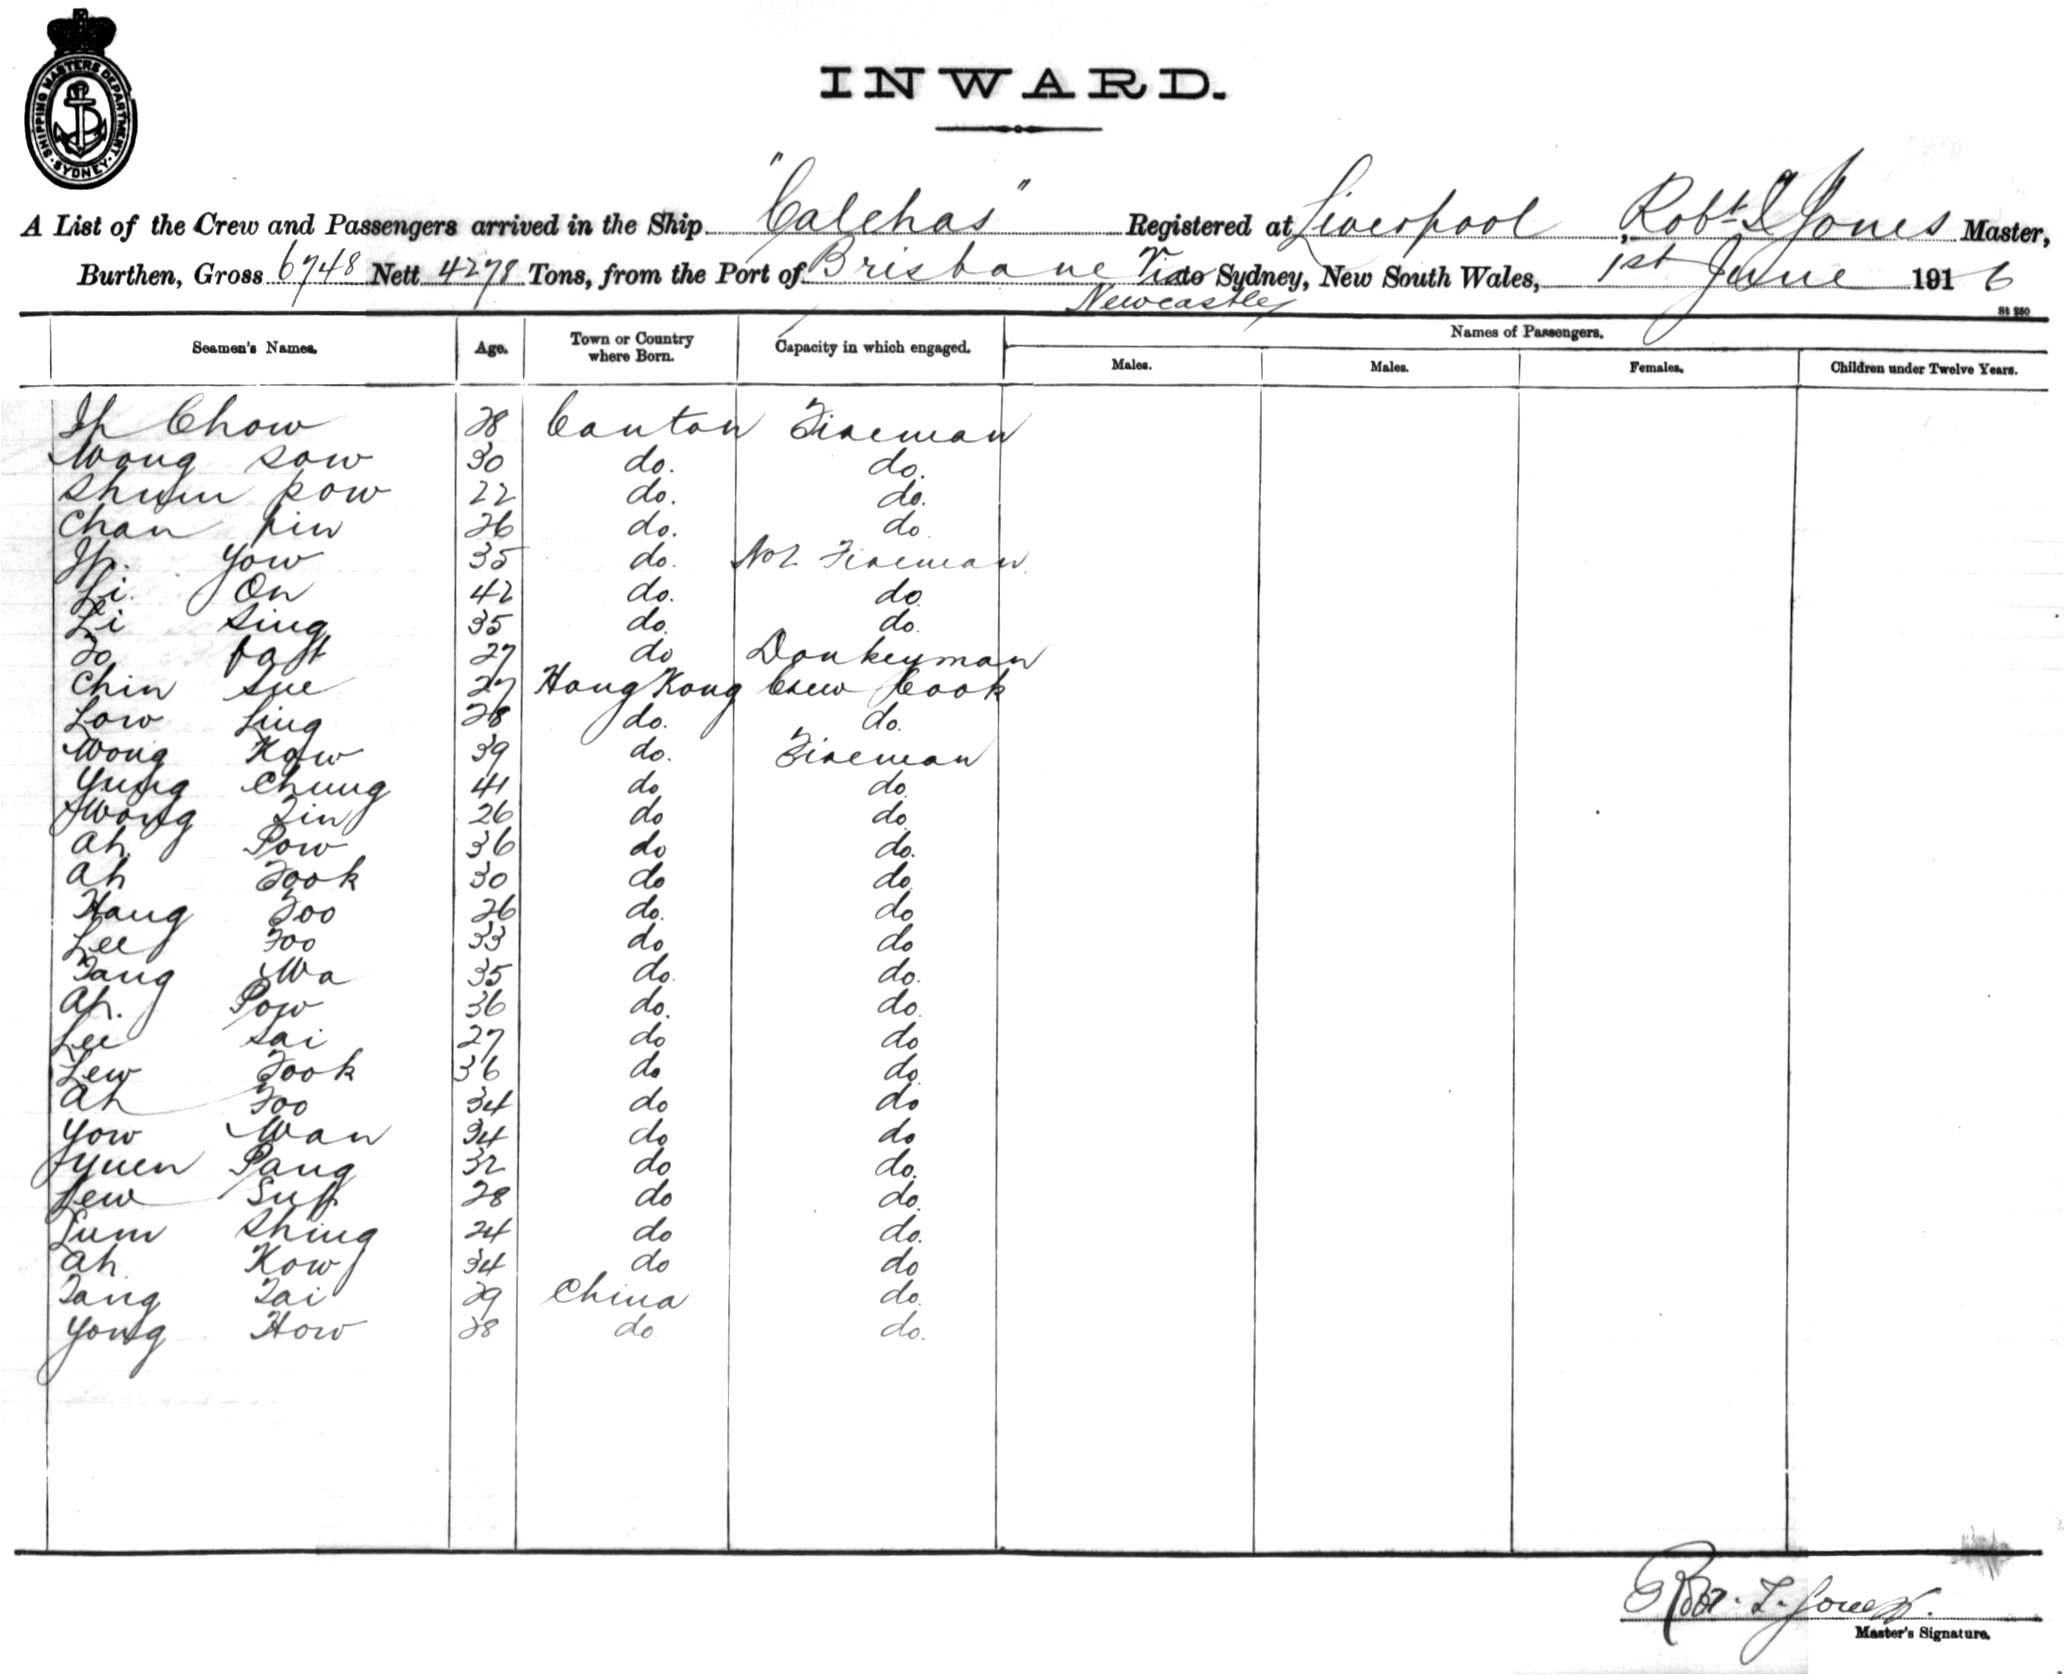 SHIPPING MASTERS DEPARTMENT · SYDNEY ·
INWARD.
A List of the Crew and Passengers arrived in the Ship "Calchas" Registered at Liverpool, Robt. Jones Master,
Burthen, Gross 6748 Nett 4278 Tons, from the Port of Brisbane Via to Sydney, New South Wales, 1st June 1916
Newcastle
St 250
Seamen's Names. Age. Town or Country where Born. Capacity in which engaged. Names of Passengers.
Males. Males. Females. Children under Twelve Years.
Ip Chow 28 Canton Fireman
Wong Sow 30 do. do.
Shum Kow 22 do. do.
Chan Pin 26 do. do
Ip. Yow 35 do. No 2 Fireman
Li. On 42 do. do
Li Sing 35 do. do.
Fo 27 do Donkeyman
Chin Sue 27 Hong Kong Crew Cook
Low Ling 28 do. do.
Wong Kow 39 do. Fireman
Yung Chung 41 do do.
Wong Tin 26 do do.
Ah. Pow 36 do do.
Ah Fook 30 do do.
Hang Foo 26 do. do
Lee Foo 33 do do
Tang Wa 35 do. do.
Ah. Pow 36 do. do.
Lee Sai 27 do do
Lew Fook 36 do do.
Ah Foo 34 do do
Yow Wan 34 do do
Yuen Pang 32 do do.
Lew 28 do do.
Lum Shing 24 do do.
Ah Kow 34 do do
Tang Tai 29 China do.
Yong How 28 do do.
Robt. T. Jones.
Master's Signature.